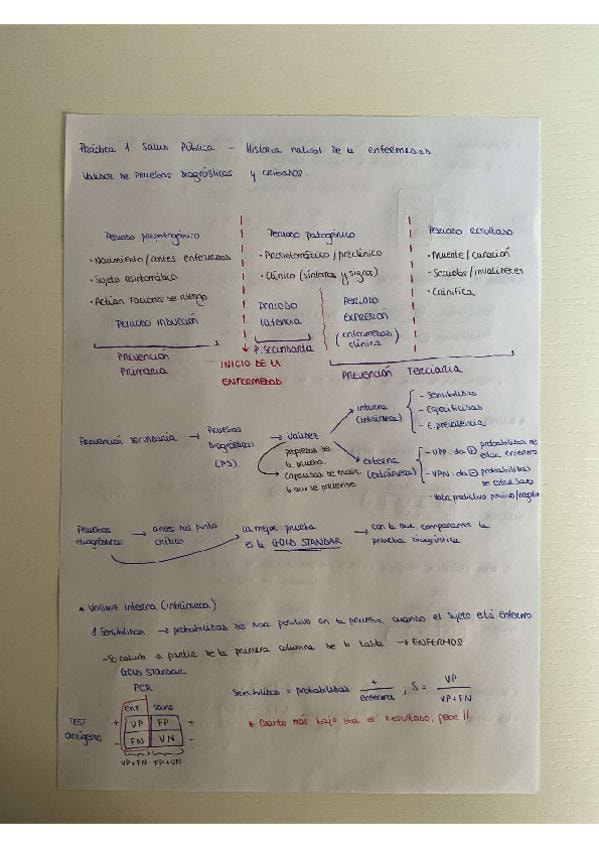 Práctica 1 Salud Pública - Historia natural de la enfermedad.
Validez de pruebas diagnósticas y cribados.
Periodo prepatogénico
• Nacimiento/antes enfermedad
• Sujeto asintomático
• Actúan factores de riesgo
Periodo inducción
PREVENCIÓN
PRIMARIA
INICIO DE LA
ENFERMEDAD
Periodo patogénico
• Presintomático/preclínico
• Clínico (síntomas y signos)
PERIODO
LATENCIA
P. Secundaria
PERIODO
EXPRESIÓN
(enfermedad
clínica)
Periodo resultado
• Muerte/curación
• Secuelas/invalideces
• Cronifica
PREVENCIÓN TERCIARIA
Prevención secundaria → Pruebas
Diagnósticas
(PS)
→ Validez
propiedad de
la prueba.
capacidad de medir
lo que se pretende
interna
(intrínseca)
- Sensibilidad
- Especificidad
- E. prevalencia
externa
(extrínseca)
- VPP: da + probabilidad de
estar enfermo
- VPN: da - probabilidad
de estar sano
- Valor predictivo positivo/negativo
Pruebas
diagnósticas
→ antes del punto
crítico
→ la mejor prueba
es la GOLD STANDAR
→ con la que comparamos la
prueba diagnóstica
Validez interna (intrínseca)
1. Sensibilidad → probabilidad de dar positivo en la prueba cuando el sujeto está enfermo
- Se calcula a partir de la primera columna de la tabla → ENFERMOS
GOLD STANDAR
PCR
Enf. Sano
TEST
antígenos
+ VP FP +
- FN VN -
VP+FN FP+VN
Sensibilidad = probabilidad + / enfermo, S = VP / VP+FN
* Cuanto más bajo sea el resultado, peor!!